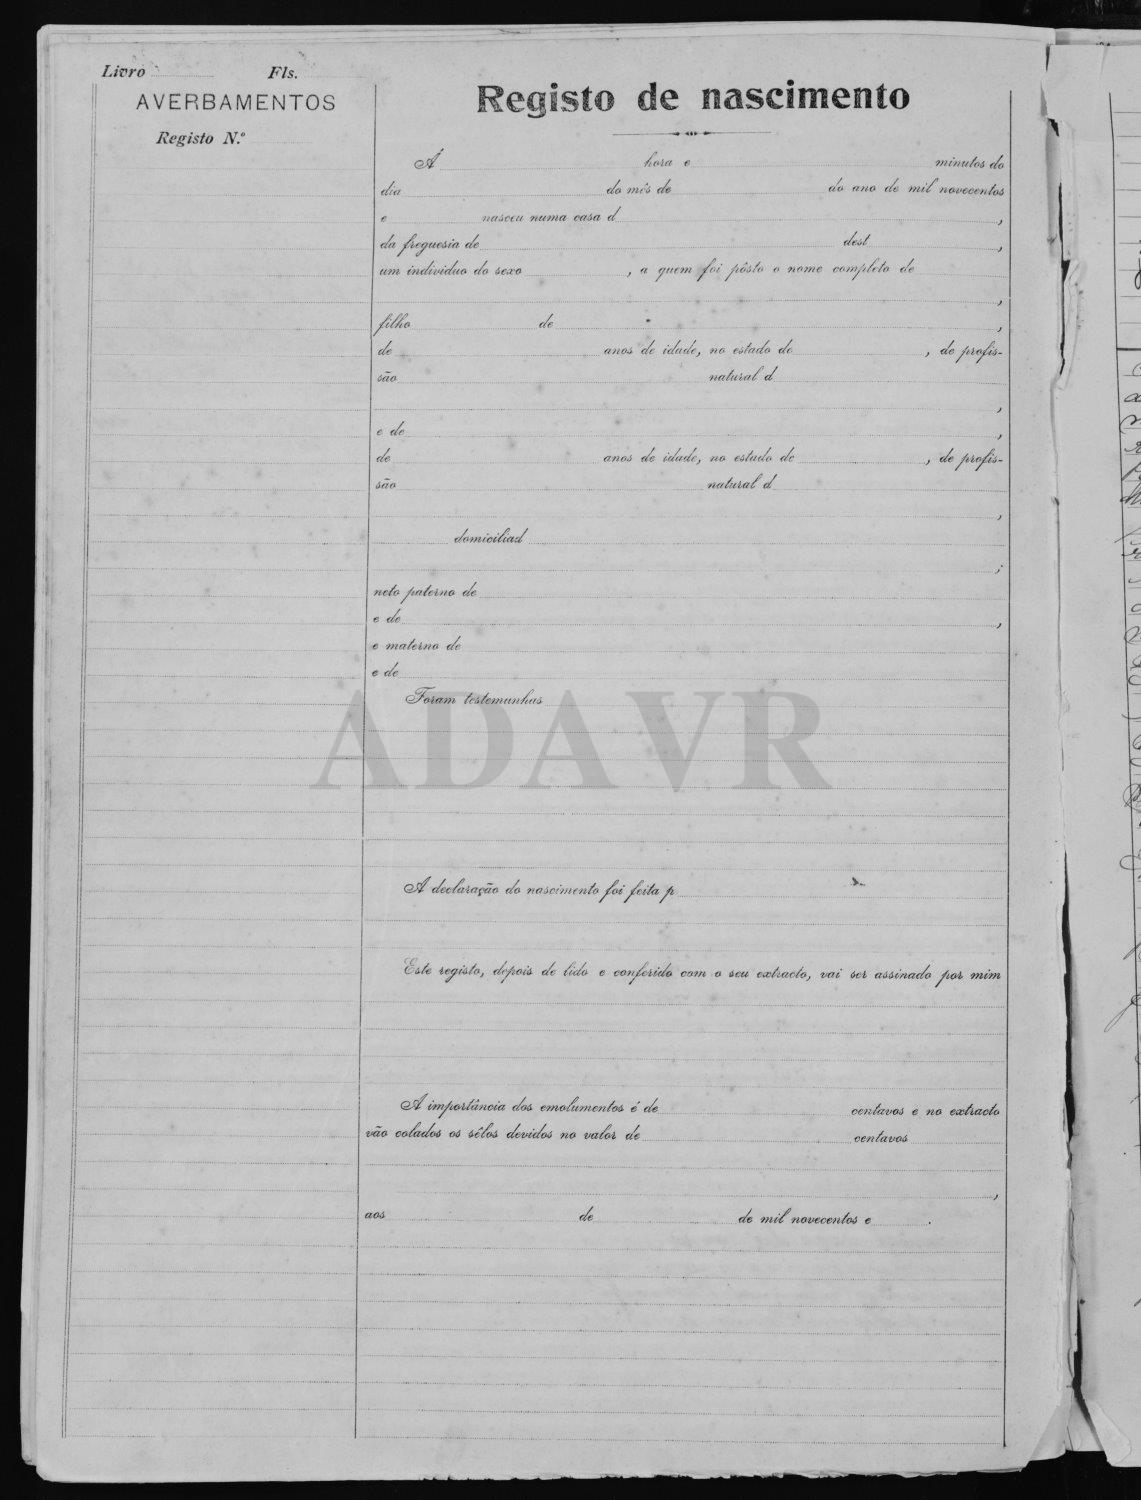 Livro Fls.
AVERBAMENTOS
Registo N.º
Registo de nascimento
Á hora e minutos do
dia do mês de do ano de mil novecentos
e nasceu numa casa d ,
da freguesia de dest ,
um individuo do sexo , a quem foi pôsto o nome completo de
,
filho de ,
de anos de idade, no estado de , de profis-
são natural d
,
e de ,
de anos de idade, no estado de , de profis-
são natural d
,
domiciliad
;
neto paterno de
e de ,
e materno de
e de
Foram testemunhas
ADAVR
A declaração do nascimento foi feita p
Este registo, depois de lido e conferido com o seu extracto, vai ser assinado por mim
A importância dos emolumentos é de centavos e no extracto
vão colados os sêlos devidos no valor de centavos
,
aos de de mil novecentos e .